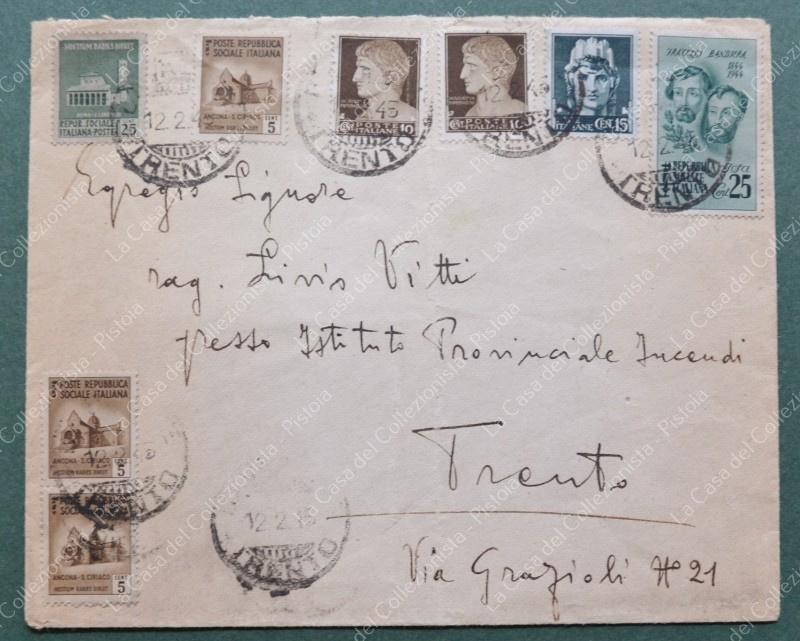 HOSTIUM RABIES DIRUIT
REPUB. SOCIALE
ITALIANA-POSTE 25
POSTE REPUBBLICA
SOCIALE ITALIANA
ANCONA - S. CIRIACO
CENT 5
HOSTIUM RABIES DIRUIT
POSTE
ITALIANE 10
POSTE
ITALIANE 10
CENT. 15
FRATELLI BANDIERA
1844
1944
REPUBBLICA
SOCIALE
ITALIANA
POSTA
Cent. 25
12.2.45
TRENTO
Egregio Signore
rag. Livio Vitti
presso Istituto Provinciale Incendi
Trento
Via Grazioli N 21
POSTE REPUBBLICA
SOCIALE ITALIANA
ANCONA - S. CIRIACO
CENT 5
HOSTIUM RABIES DIRUIT
ANCONA - S. CIRIACO
CENT 5
HOSTIUM RABIES DIRUIT
12.2.45
TRENTO
La Casa del Collezionista - Pistoia